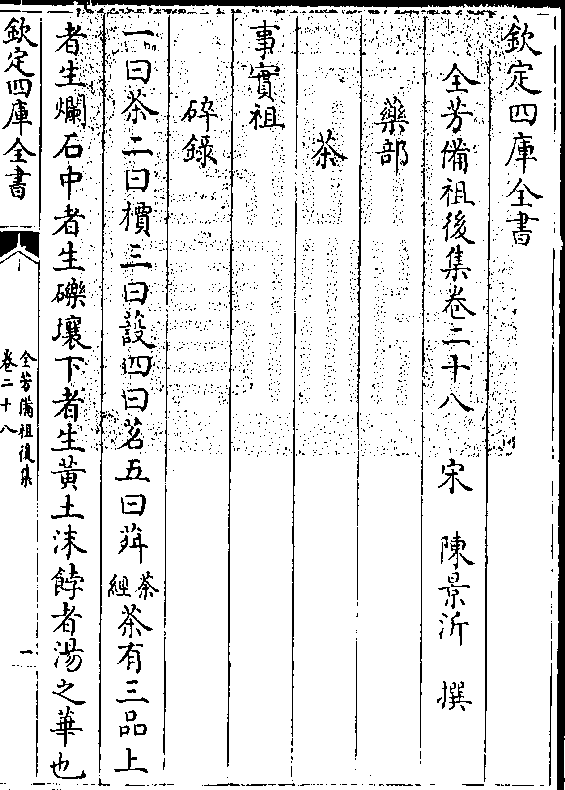 欽定四庫全書
全芳備祖後集卷二十八 宋 陳景沂 撰
藥部
茶
事實祖
碎錄
一曰茶二曰檟三曰設四曰茗五曰荈茶經茶有三品上
者生爛石中者生礫壤下者生黃土沫餑者湯之華也
欽定四庫全書
全芳備祖後集
卷二十八
一